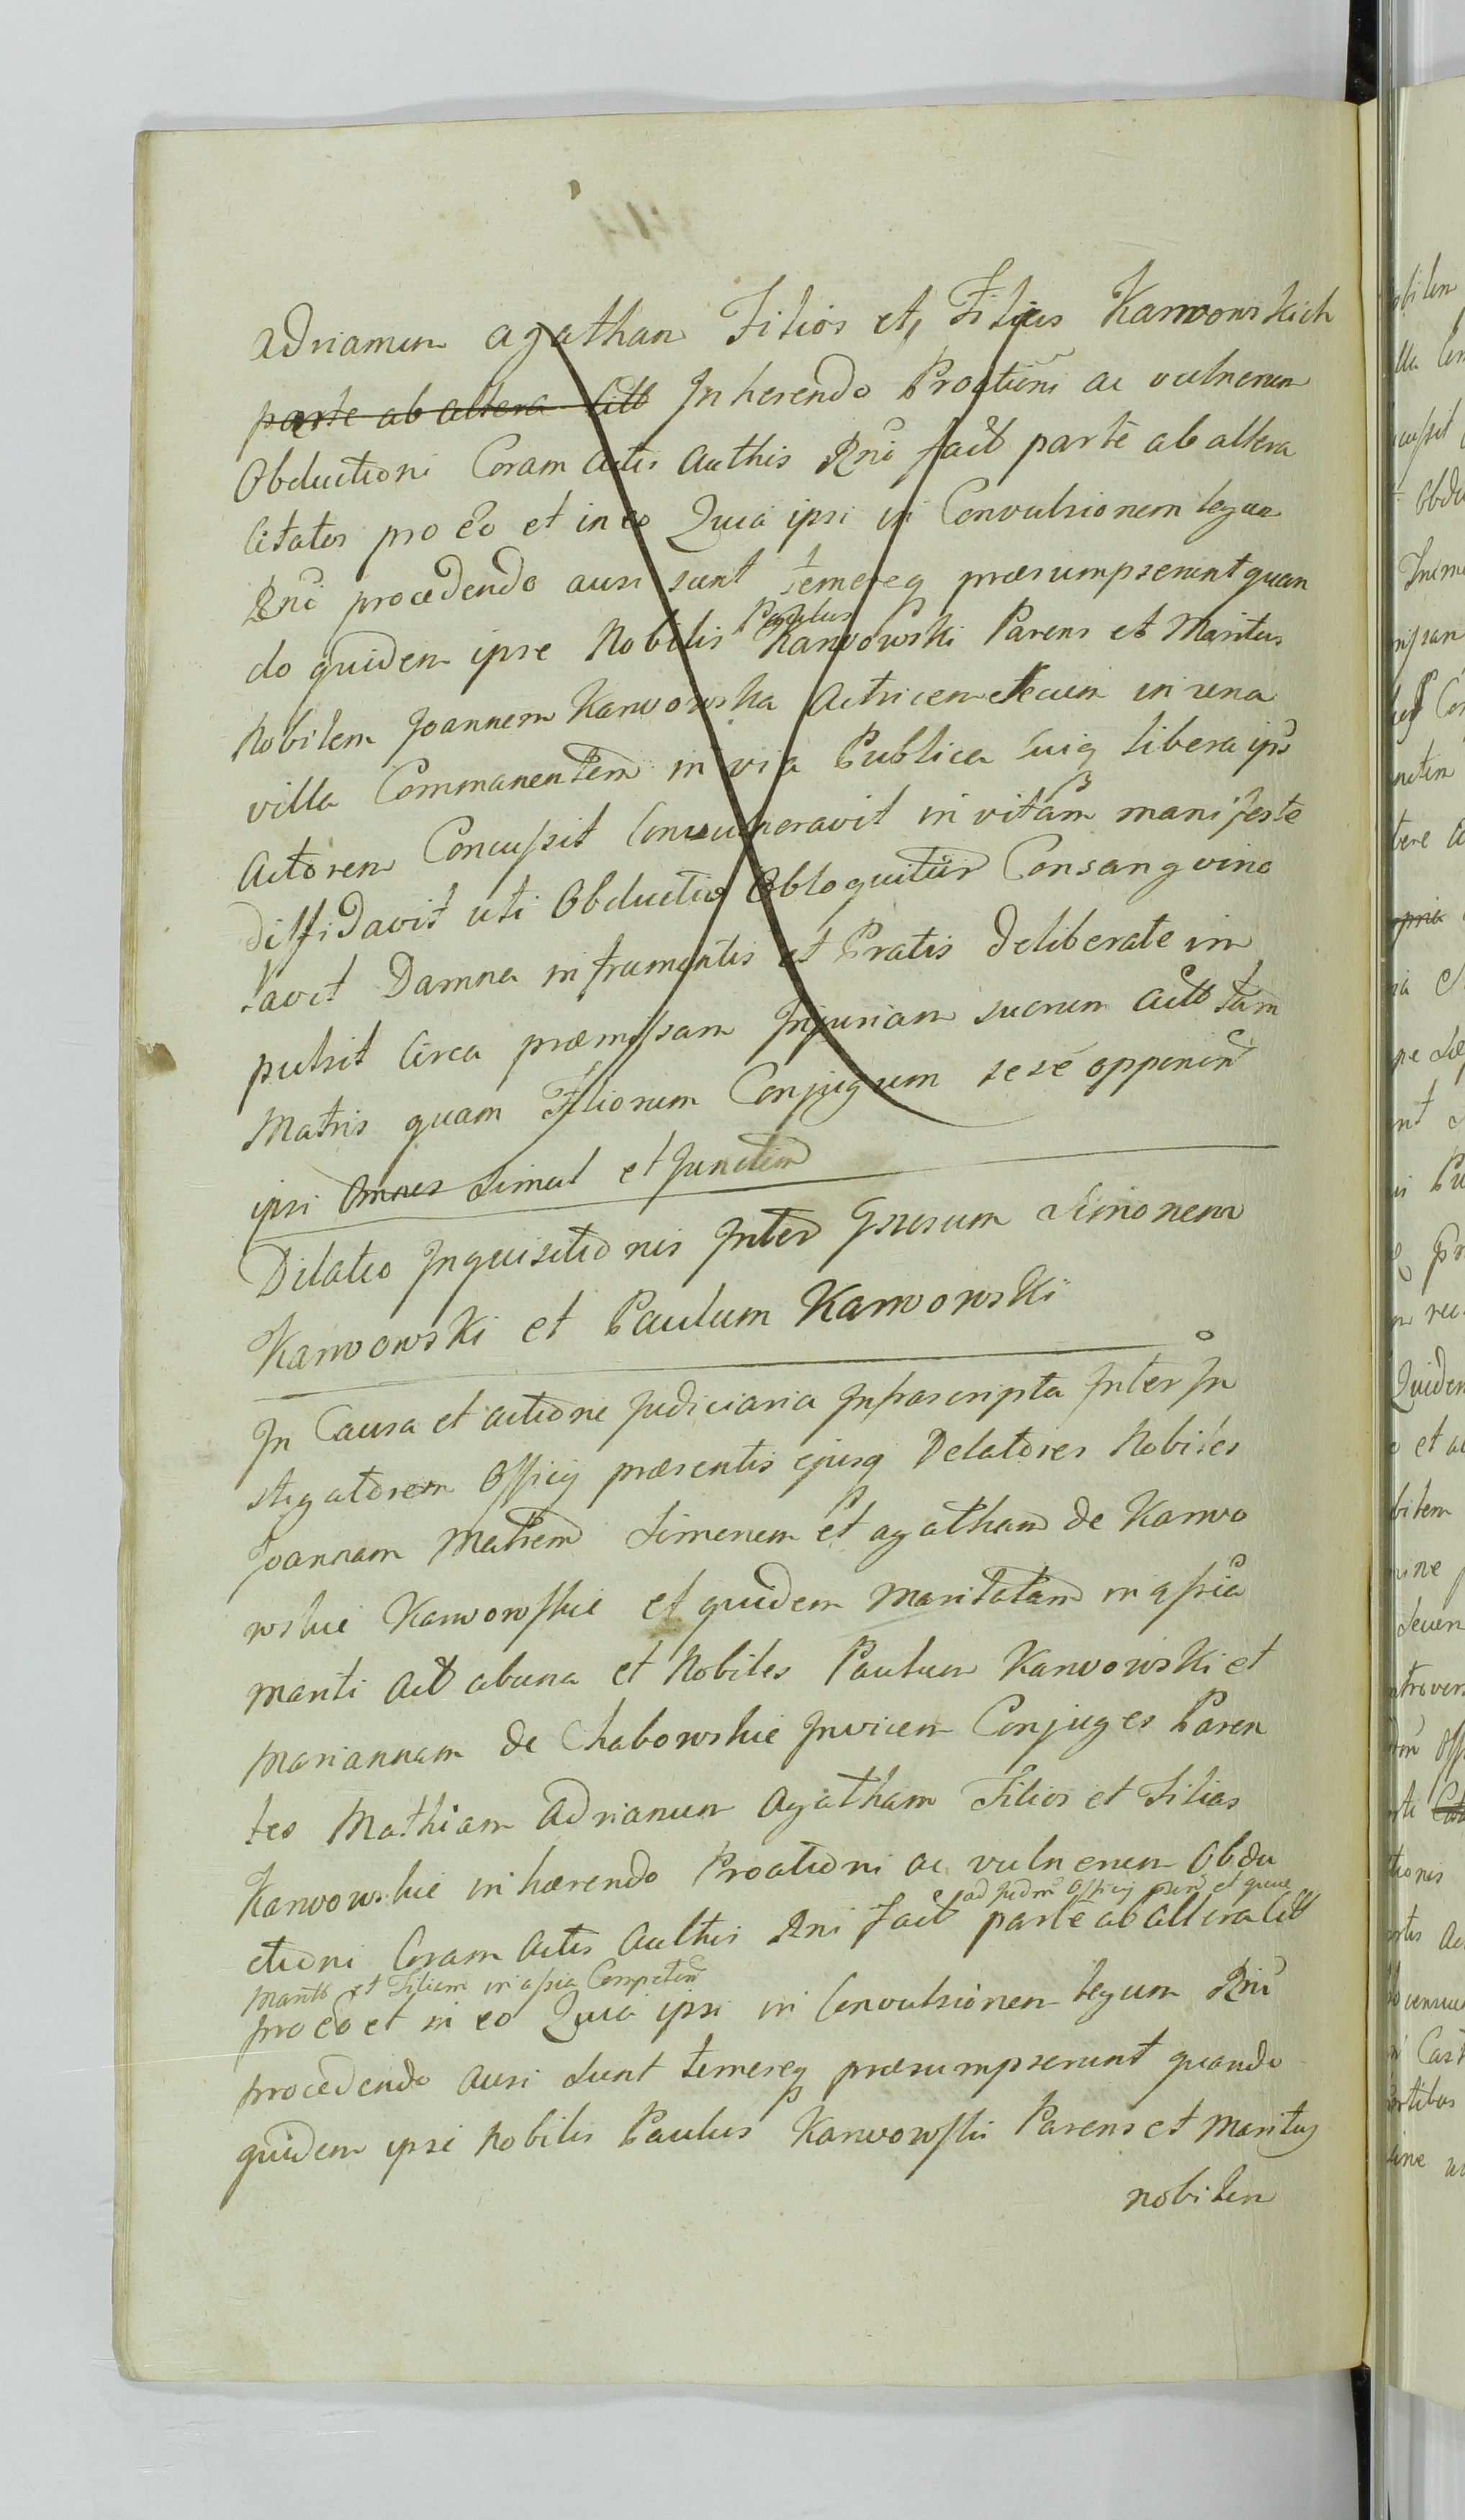 Adriamum agathan Filios et, Filias Karwowskich
parte ab altera Citt Inherendo Proationi ac vulnerum
Obductioni Coram Actis Authis Rni fact parte ab altera
Citatos pro eo et in eo Quia ipsi in Convulsionem legum
Rni procedendo ausi sunt temereq praesumpserunt quan
do quidem ipse Nobilis Paulus Karwowski Parens et Maritus
Nobilem Joannem Karwowska Actricem secum in una
villa Commanentem in via Publica suiq libera ips
Actorem Concussit Convulneravit in vitam manifeste
diffidavit uti Obductio Obloquitur Consangvino
lavit Damna in frumentis et Pratis deliberate im
pulsit Circa praemissam Injuriam suorum Actt tam
Matris quam Filiorum Conjugum sese opponent
ipsi Omnes Simul et Junctim
Dilatio Inquisitionis Inter Gnrosum Simonem
Karwowski et Paulum Karwowski
In Causa et actione Judiciaria Infrascripta Inter In
stigatorem Officij praesentis ejusq Delatores Nobiles
Joannam Matrem Simonem et agatham de Karwo
wskie Karwowskie et quidem Maritatam in assia
mariti Act ab una et Nobiles Paulum Karwowski et
Mariannam de Chabowskie Invicem Conjuges Paren
tes Mathiam Adrianum Agatham Filios et Filias
Karwowskie inhaerendo Proationi ac vulnerum Obdu
ctioni Coram Actis Authis Rni fact ad Judm Officij psens et quae parte ab altera Citt
Maritt et Filiam in assia Competen
pro eo et in eo Quia ipsi in Convulsionem legum Rni
procedendo Ausi Sunt temereq praesumpserunt quando
quidem ipse Nobilis Paulus Karwowski Parens et Maritus
nobilem